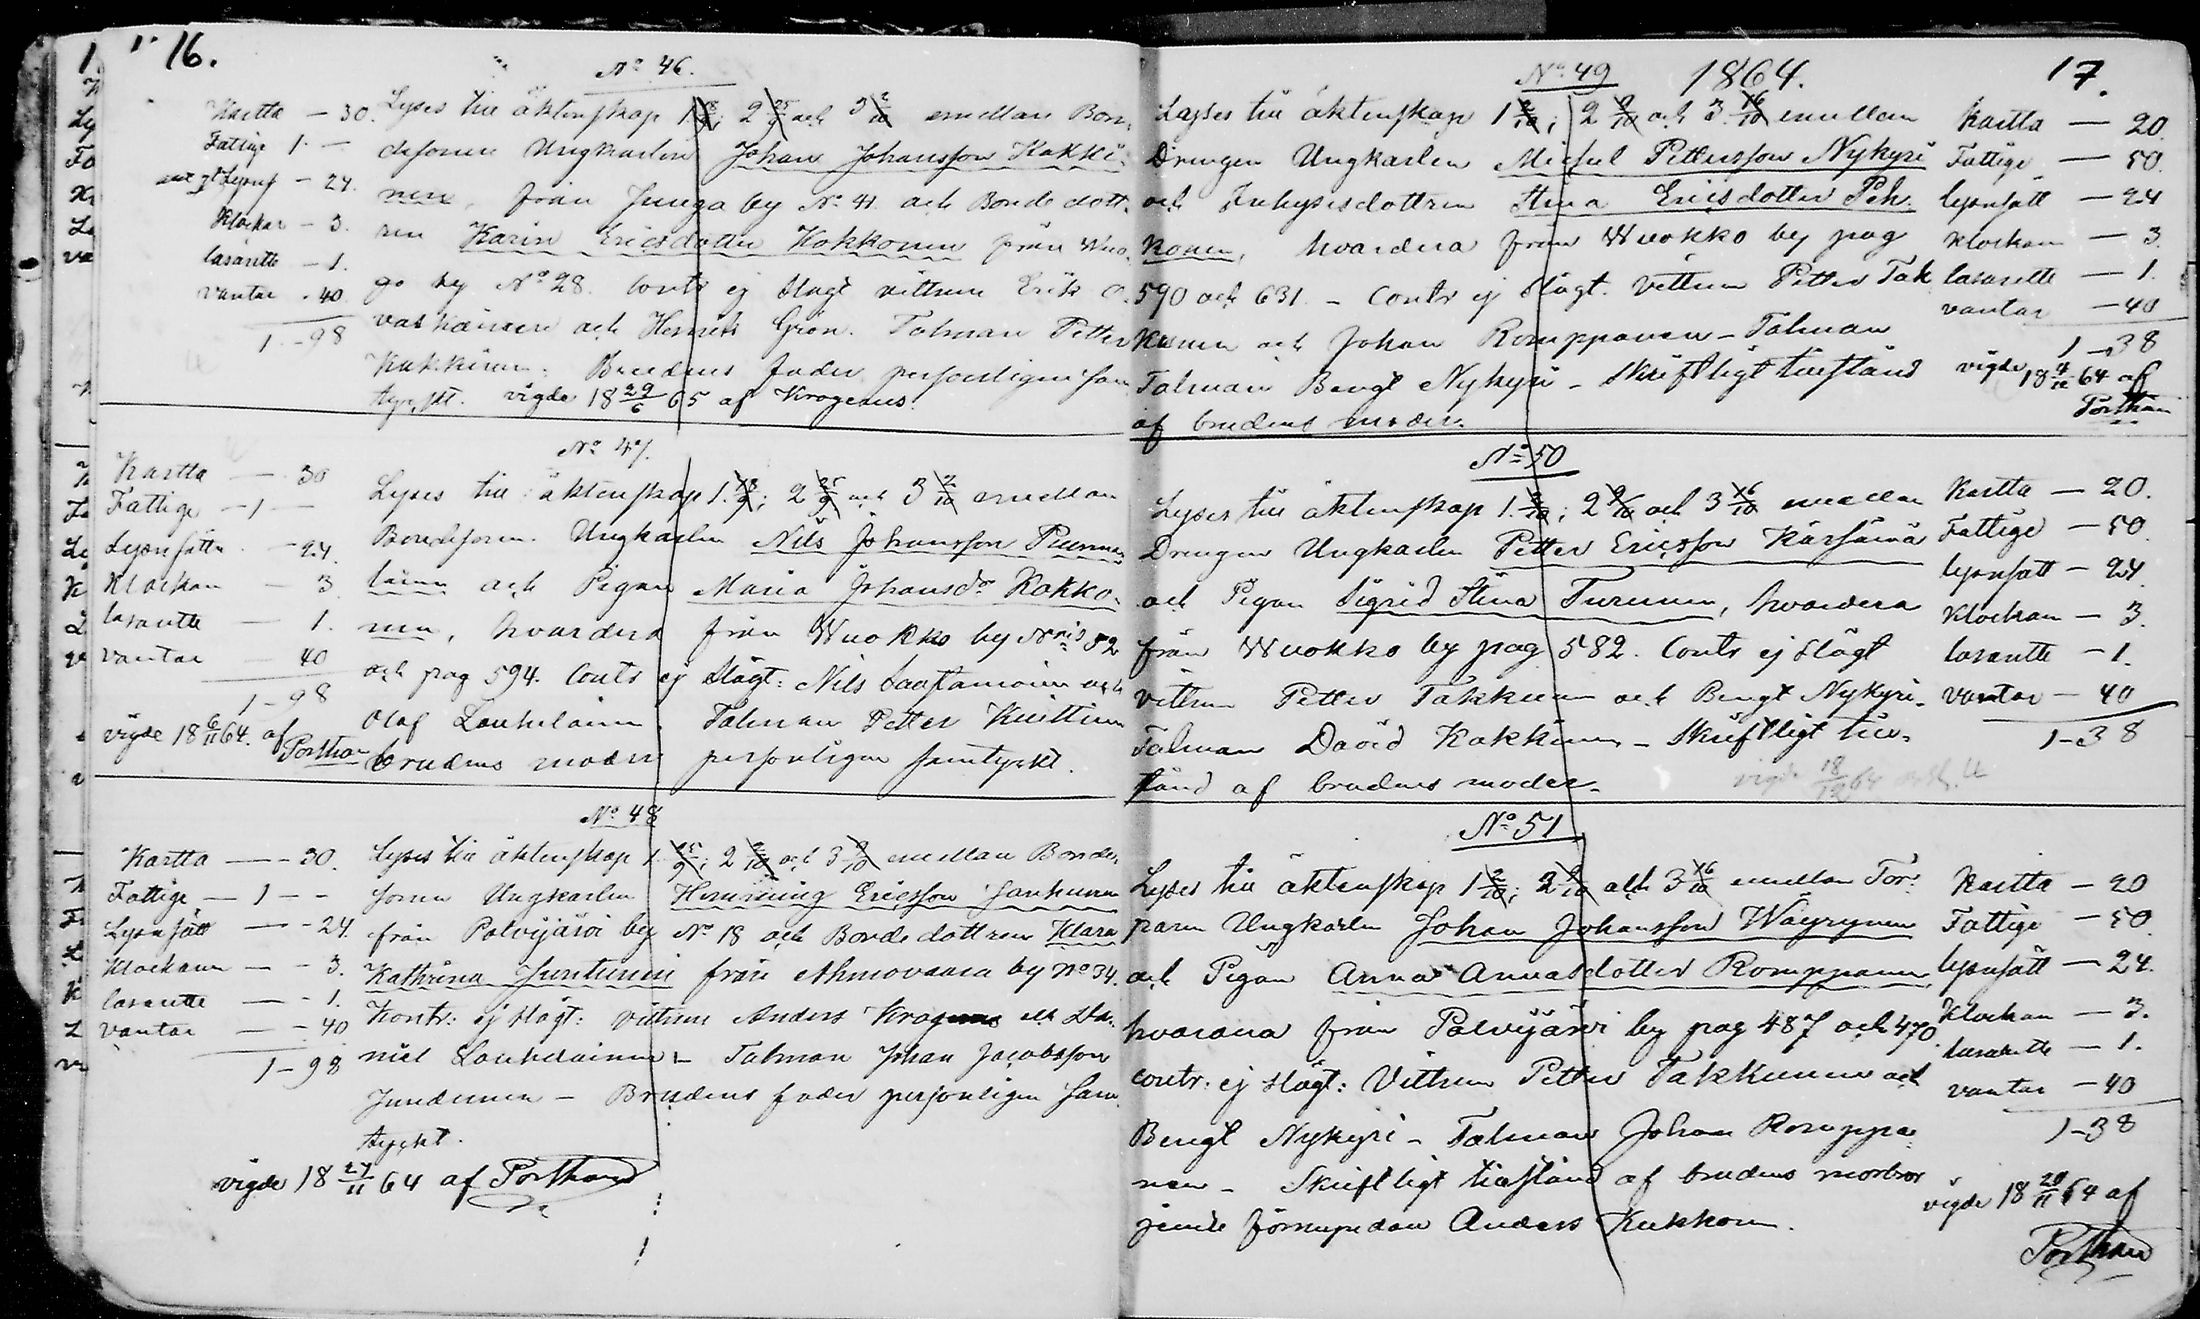 16.
No 46.
Kartta — 30.
Fattige 1 —
— 24.
Klockar — 3.
lasarette — 1.
vantar - 40.
1 - 98
Lyses till äktenskap 1 18/9; 2 25/9 och 3 2/10 emellan Bon-
desonen Ungkarlen Johan Johansson Kakki-
nen, från Junga by No 41 och Bonde dott-
ren Karin Ericsdotter Kokkonen från
by No 28. Contr ej slägt vittnen Erik
och Henrik Grön. Talman Petter
Kakkinen. Brudens fader personligen sam
tyckt. vigde 18 29/6 65 af Krogerus.
No 47.
Kartta — 30
Fattige — 1 —
Lysnsättn — 24.
Klockan — 3
lasarette — 1.
vantar — 40
1 - 98
vigde 18 6/11 64. af
Porthan
Lyses till äktenskap 1. 18/9; 2 25/9 och 3 2/10 emellan
Bondesonen Ungkarlen Nils Johansson
och Pigan Maria Johansdr Kokko-
nen, hvardera från Wuokko by
och pag 594. Contr ej slägt: Nils och
Olof Talman Petter
brudens moder personligen samtyckt.
No 48
Kartta — 30.
Fattige — 1 —
Lysnsätt — 24.
Klockann — 3.
lasarette — 1.
vantar — 40
1 - 98
lyses till äktenskap 1 25/9; 2 2/10 och 3 9/10 emellan Bonde-
sonen Ungkarlen Henning Ericsson
från Polvijärvi by No 18 och Bonde dottren Klara
Kathrina Juntunen från Ahmovaara by No 34.
Kontr: ej slägt: vittnen Anders Krogerus och Da-
niel Talman Johan Jacobsson
Brudens fader personligen sam
tyckt.
vigde 18 27/11 64 af Porthan
1864.
17.
No 49
Lyses till äktenskap 1 2/10; 2 9/10 och 3 16/10 emellan
Drengen Ungkarlen Michel Pettersson Nykyri
och Inhysesdottren Stina Ericsdotter Pek-
konen, hvardera från Wuokko by pag
590 och 631. - Contr ej slägt. Vittnen Petter Tak
kunen och Johan Romppanen - Talman
Talman Bengt Nykyri - Skriftligt tillstånd
af brudens moder.
Kartta — 20.
Fattige — 50.
lysnsätt — 24
Klockan — 3.
lasarette — 1.
vantar — 40
1 - 38
vigde 18 4/12 64 af
Porthan
No 50
Lyses till äktenskap 1. 2/10; 2 9/10 och 3 16/10 emellan
Drengen Ungkarlen Petter Ericsson Kärsämä
och Pigan Sigrid Stina Turunen, hvardera
från Wuokko by pag 582. Contr ej slägt
vittnen Petter Takkunen och Bengt Nykyri.
Talman David Kakkinen - Skriftligt till-
stånd af brudens moder.
vigde 18/12 64
Kartta — 20.
Fattige — 50.
lysnsätt — 24.
Klockan — 3.
lasarette — 1.
Vantar — 40
1 - 38
No 51
Lyses till äktenskap 1 2/10; 2 9/10 och 3 16/10 emellan Tor-
paren Ungkarlen Johan Johansson Wäyrynen
och Pigan Anna Annasdotter Romppanen,
hvardera från Polvijärvi by pag 487 och 470.
contr: ej slägt: Vittnen Petter Takkunen och
Bengt Nykyri - Talman Johan Romppa-
nen - Skriftligt tillstånd af brudens morbror
förmyndan Anders
Kartta — 20
Fattige — 50.
lysnsätt — 24.
Klockan — 3.
lasarette — 1.
vantar — 40
1 - 38
vigde 18 20/11 64 af
Porthan